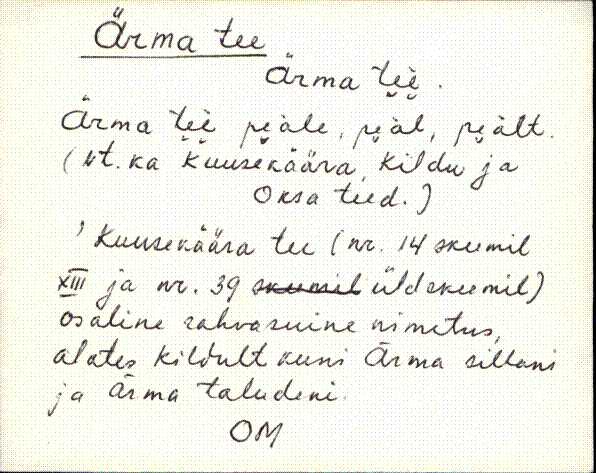 Ärma tee
Ärma tee.
Ärma tee peäle, peäl, peält.
(vt. ka Kuusekäära, Kildu ja
Oksa teed.)
' Kuusekäära tee (nr. 14 skeemil
XIII ja nr. 39 skeemil üldskeemil)
osaline rahvasuine nimetus,
alates Kildult kuni Ärma sillani
ja Ärma taludeni.
OM